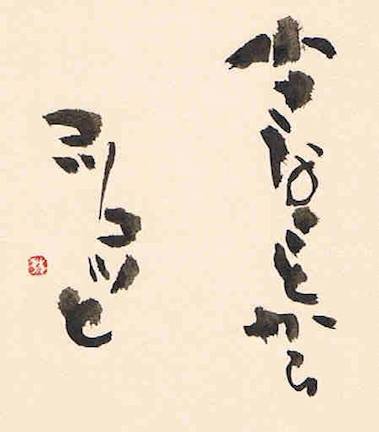 小さなことから
コツコツと